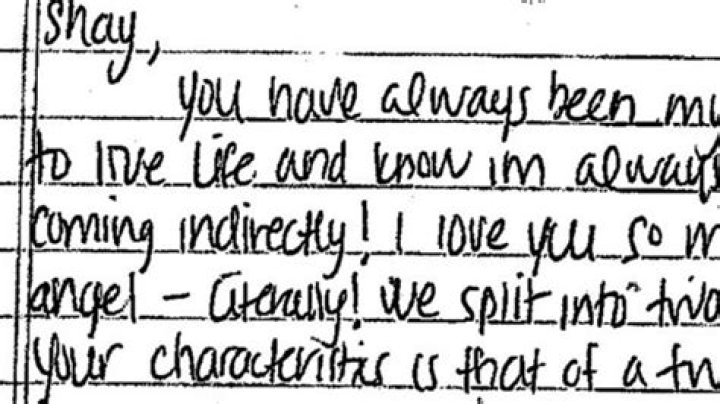 Shay,
you have always been my
to live life and know im always
coming indirectly! I love you so m
angel - literally! We split into two
your characteristics is that of a